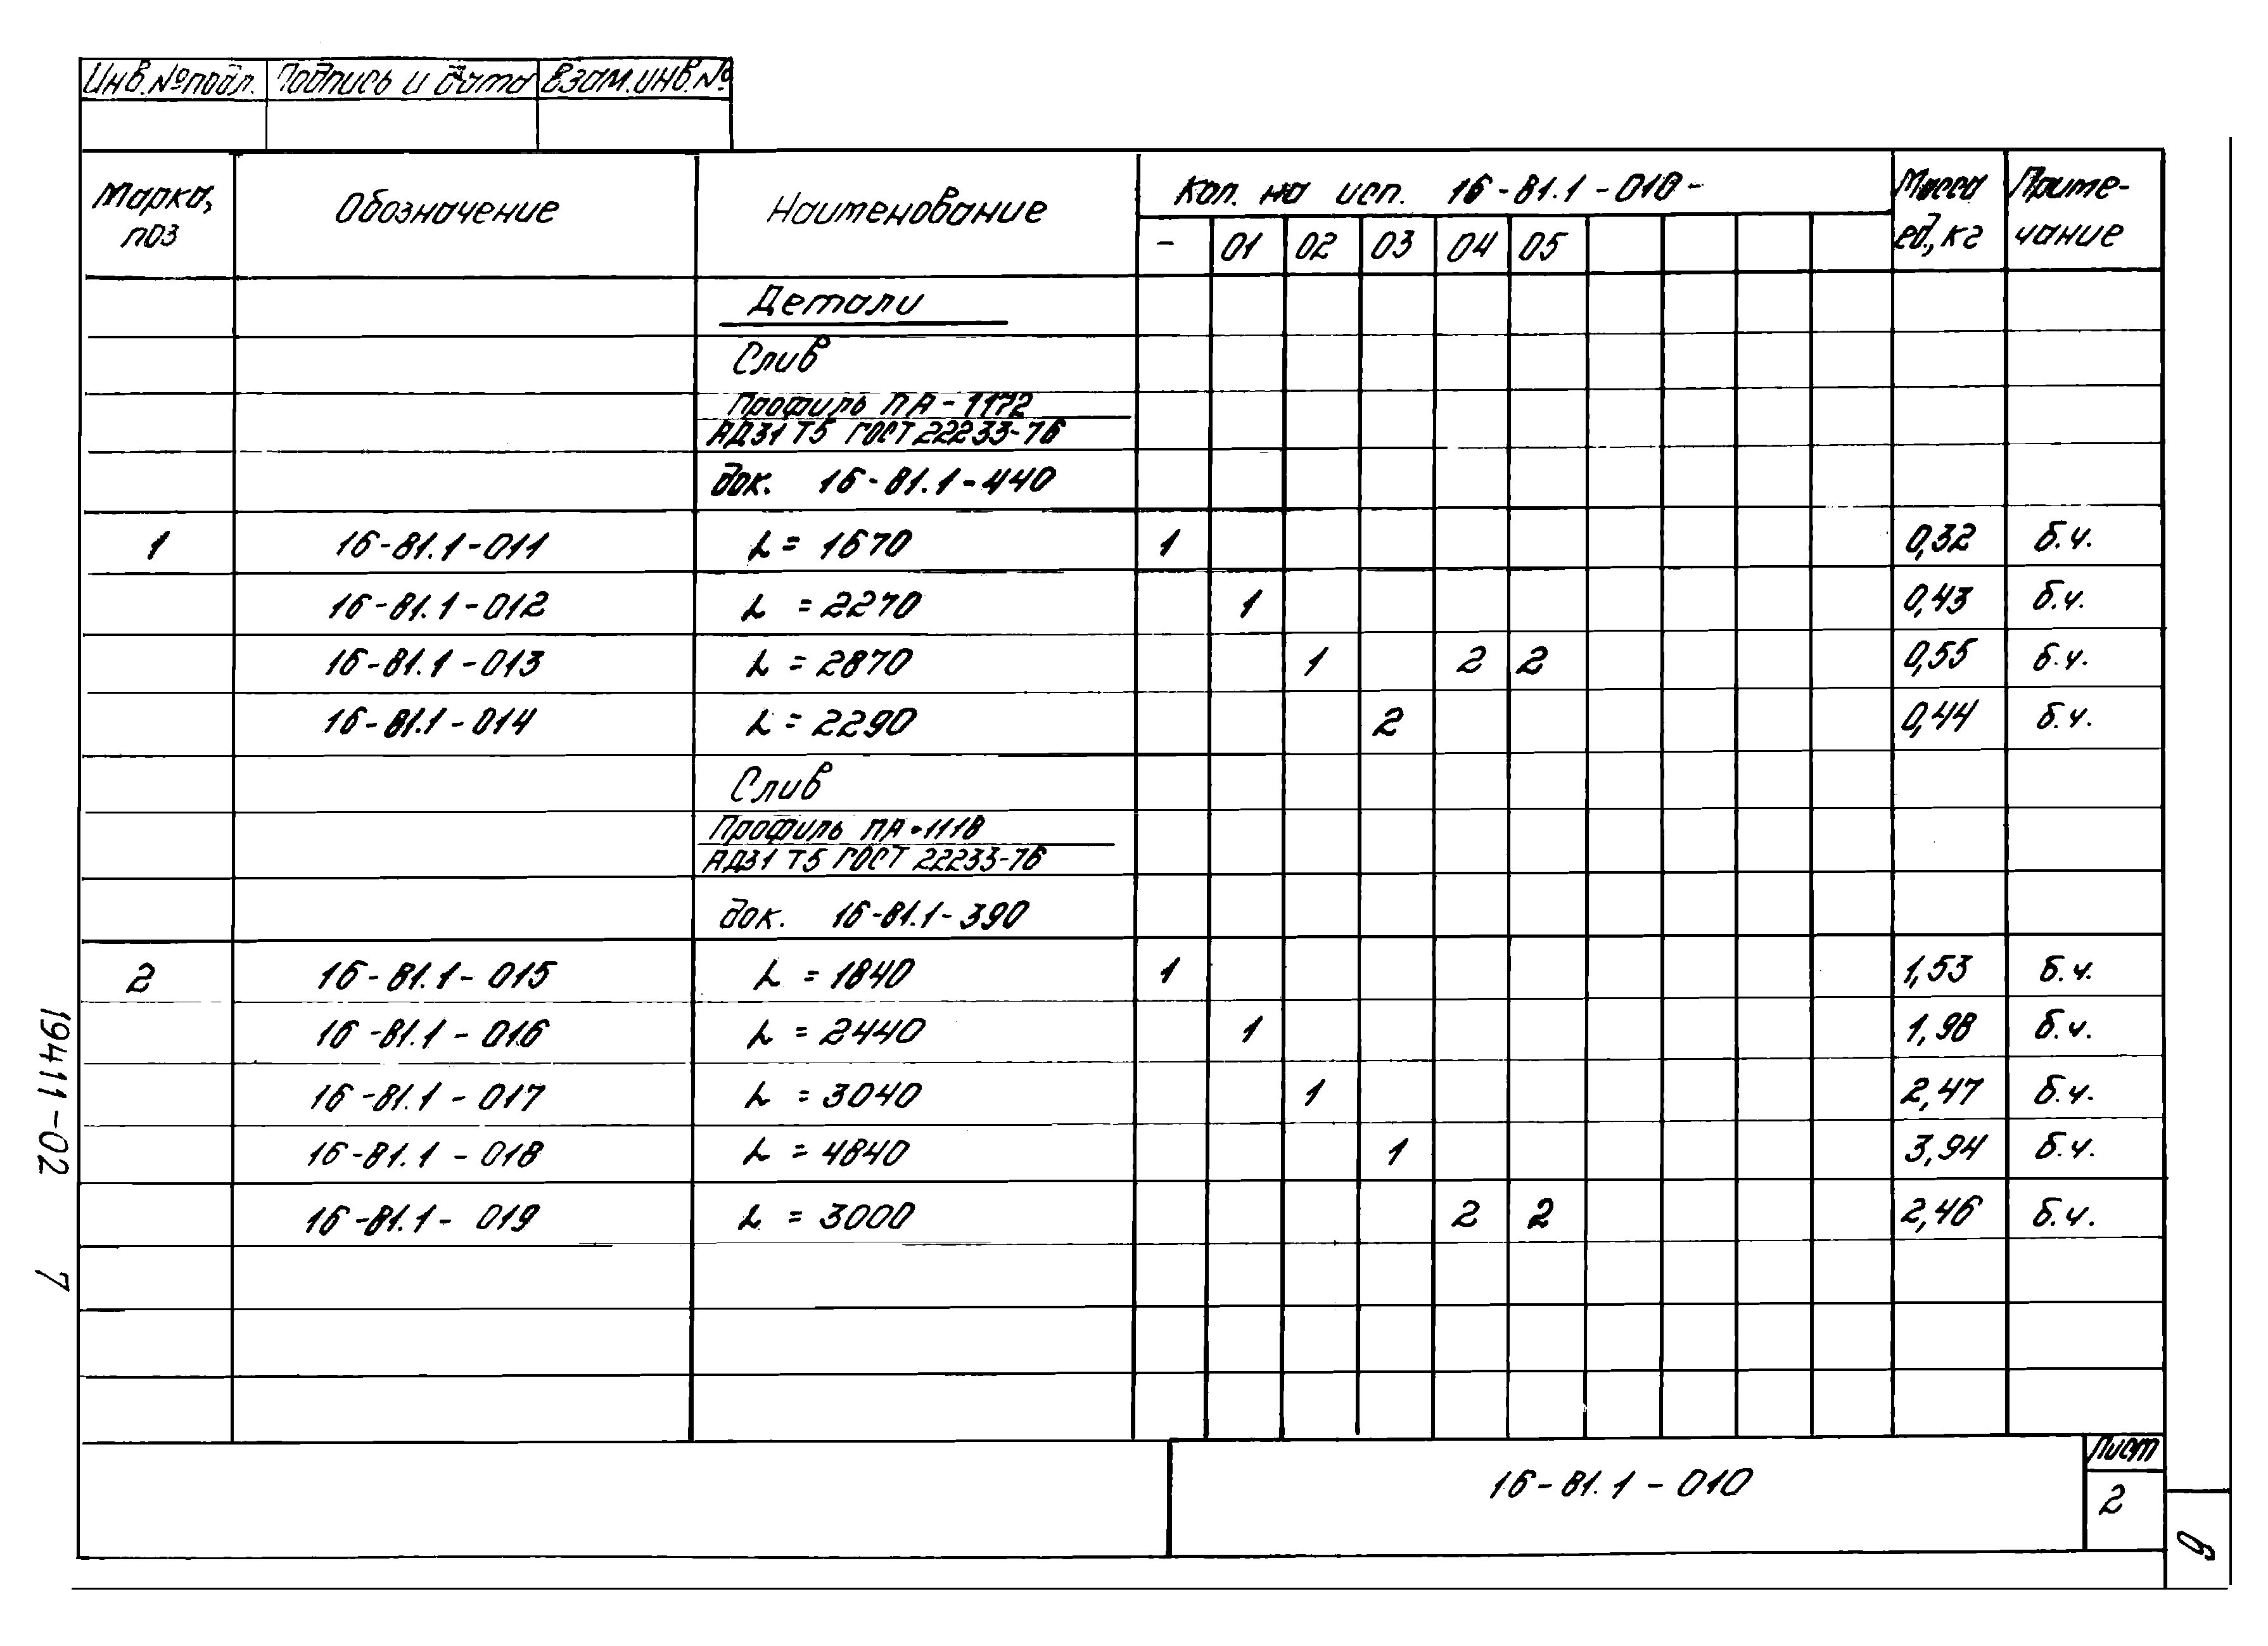 Инв.№подл. Подпись и дата Взам.инв.№
Марка, поз Обозначение Наименование Кол. на исп. 16-81.1-010- Масса ед., кг Приме-чание
- 01 02 03 04 05
Детали
Слив
Профиль ПА-1172
АД31 Т5 ГОСТ 22233-76
док. 16-81.1-440
1 16-81.1-011 L = 1670 1 0,32 б.ч.
16-81.1-012 L = 2270 1 0,43 б.ч.
16-81.1-013 L = 2870 1 2 2 0,55 б.ч.
16-81.1-014 L = 2290 2 0,44 б.ч.
Слив
Профиль ПА-1118
АД31 Т5 ГОСТ 22233-76
док. 16-81.1-390
2 16-81.1-015 L = 1840 1 1,53 б.ч.
16-81.1-016 L = 2440 1 1,98 б.ч.
16-81.1-017 L = 3040 1 2,47 б.ч.
16-81.1-018 L = 4840 1 3,94 б.ч.
16-81.1-019 L = 3000 2 2 2,46 б.ч.
16-81.1-010
Лист
2
19411-02 7